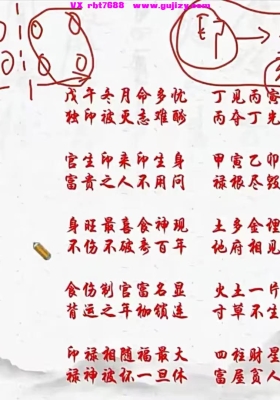 VX rbt7688 www.gujizy.com
戊午冬月命多忧 丁见丙寅
独印被夹志难酬 丙夺丁光
官生印来印生身 甲寅乙卯
富贵之人不用问 禄根尽毁
身旺最喜食神现 土多金埋
不伤不破寿百年 地府相见
食伤制官富名显 火土一片
背运之年枷锁连 寸草不生
印禄相随福最大 四柱财星
禄神被坏一旦休 富屋贫人